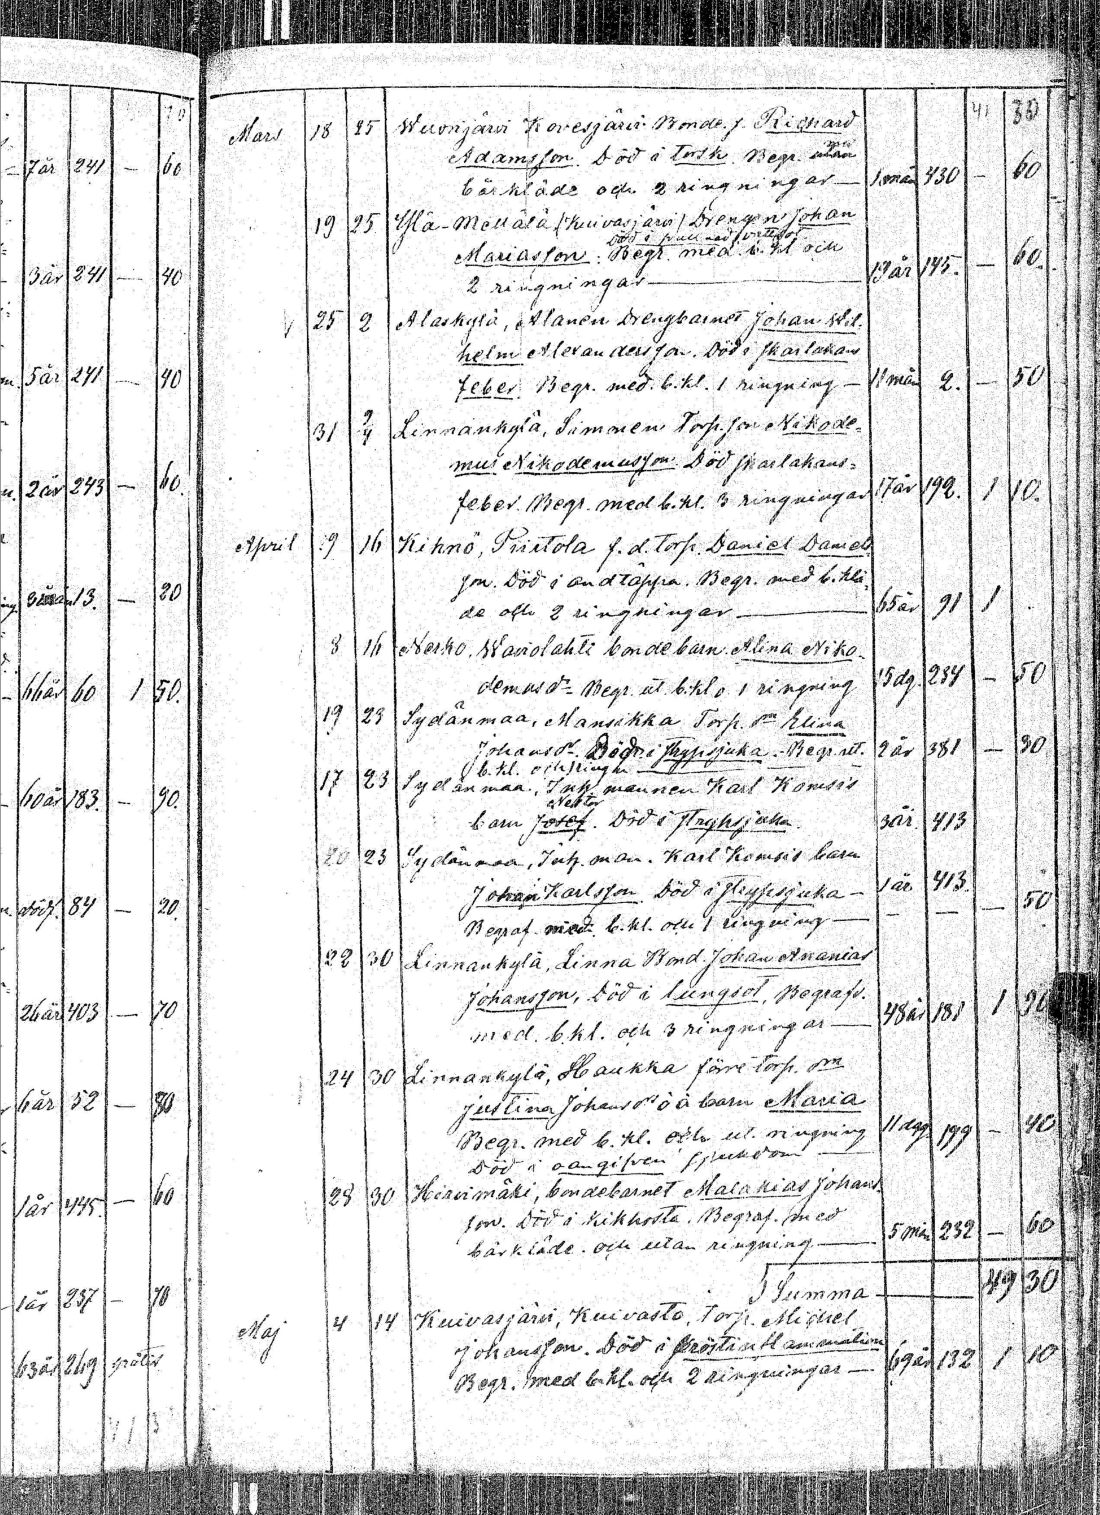 70
7 år 241 — 60
3 år 241 — 40
5 år 241 — 40
2 år 243 — 60.
13. — 20
66 år 60 1 50.
60 år 183. — 90.
dödf. 84 — 20.
26 år 403 — 70
6 år 52 — 80
1 år 445. — 60
1 år 237 — 70
63 år 269 gratis
41 30
Mars 18 25 Wuorijärvi Kovesjärvi Bonde s. Richard
Adamsson. Död i torsk. Begr. med
bärkläde och 2 ringningar — 1 mån 430 — 60
19 25 Ylä-Mettälä (Kuivasjärvi) Drengen Johan
Mariasson. Begr. med b. kl och
2 ringningar — 19 år 145. — 60.
25 2 Alaskylä, Alanen Drengbarnet Johan Wil-
helm Alexandersson. Död i skarlakans
feber. Begr. med. b.kl. 1 ringning — 11 mån 2. — 50
31 9/4 Linnankylä, Simonen Torp. son Nikode-
mus Nikodemusson. Död skarlakans-
feber. Begr. med b.kl. 3 ringningar 17 år 192. 1 10.
April 9 16 Kihnö, Piirtola f. d. torp. Daniel Daniels
son. Död i andtäppa. Begr. med b. klä-
de och 2 ringningar — 65 år 91 1 .
8 16 Nerko. Waviolahti bondebarn Alina Niko-
demusdr Begr. ut. b.kl o 1 ringning 15 dg. 234 — 50
19 23 Sydänmaa, Mansikka Torp. Elina
Johansdr. Död i strypsjuka. Begr. ut. 2 år 381 — 30
b. kl. och ringn.
17 23 Sydänmaa, Inh. mannen Karl Komsis
Nestor
barn Josef. Död i strypsjuka. 3 år. 413
20 23 Sydänmaa, Inh. man. Karl Komsis barn
Johan Karlsson. Död i strypsjuka — 1 år 413.
Begraf. med. b. kl. och 1 ringning — — — — 50
22 30 Linnankylä, Linna Bond. Johan Ananias
Johansson, Död i lungsot, Begrafd.
med. b. kl. och 3 ringningar — 48 år 181 1 90
24 30 Linnankylä, Haukka förre torp.
Justina Johansdrs oä barn Maria
Begr. med b. kl. och ut. ringning 11 dag. 199 — 40
Död i oangifven sjukdom —
28 30 Hirvimäki, bondebarnet Malakias Johans-
son. Död i kikhosta. Begraf. med
bärkläde. och utan ringning — 5 mån 232 — 60
Summa — 49 30
Maj 4 14 Kuivasjärvi, Kuivasto, Torp. Michel
Johansson. Död i Bröstinflammation
Begr. med b.kl. och 2 ringningar — 69 år 132 1 10